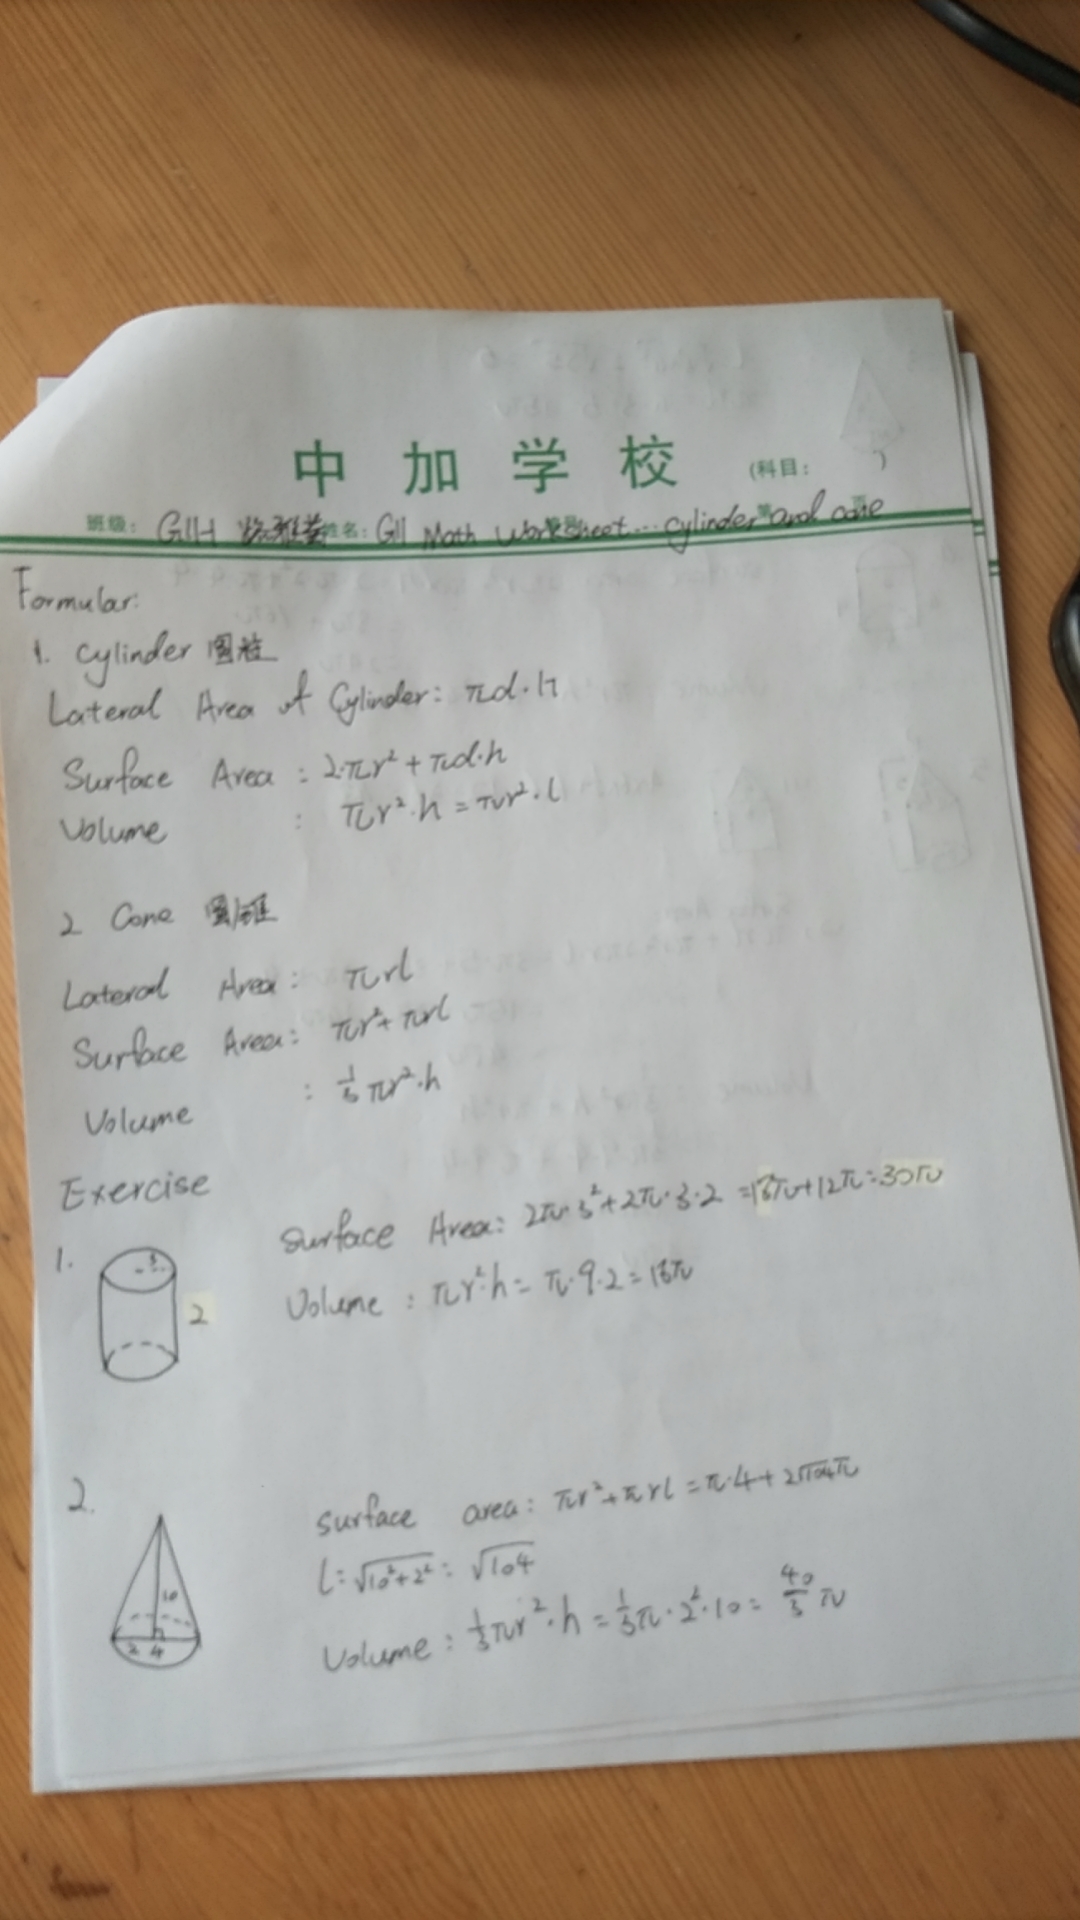 中加学校 (科目: )
班级: G11-1 姓名: G11 Math Worksheet... cylinder and cone
Formular:
1. Cylinder 圆柱
Lateral Area of Cylinder: πd·h
Surface Area : 2·πr²+πd·h
Volume : πr²·h = πr²·l
2 Cone 圆锥
Lateral Area: πrl
Surface Area: πr²+πrl
Volume : 1/3 πr²·h
Exercise
1. Surface Area: 2π·3²+2π·3·2 =18π+12π=30π
3
2
Volume : πr²·h = π·9·2 = 18π
2. surface area: πr²+πrl = π·4+2√104π
l=√10²+2² = √104
10
2 4
Volume : 1/3πr²·h = 1/3π·2²·10 = 40/3 π